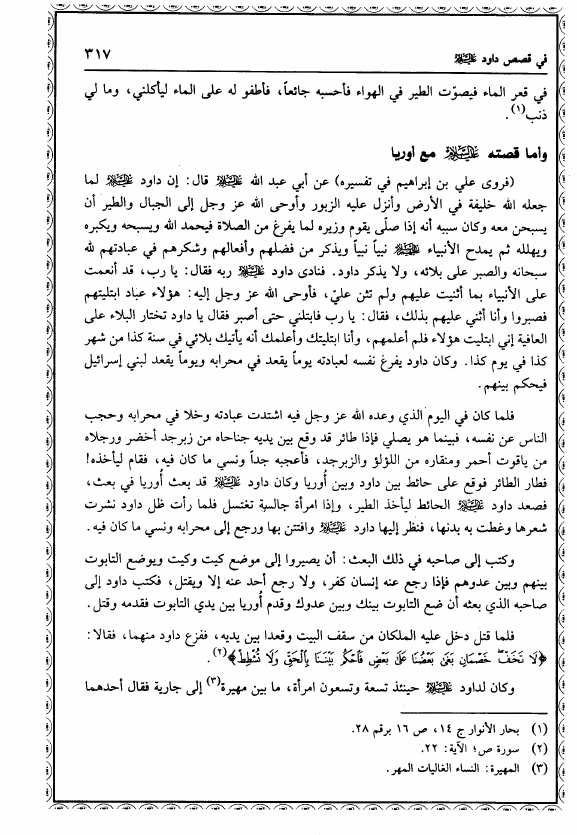 في قصص داود عليه السلام ٣١٧
في قعر الماء فيصوّت الطير في الهواء فأحسبه جائعاً، فأطفو له على الماء ليأكلني، وما لي
ذنب(١).
وأما قصته عليه السلام مع أوريا
(فروى علي بن إبراهيم في تفسيره) عن أبي عبد الله عليه السلام قال: إن داود عليه السلام لما
جعله الله خليفة في الأرض وأنزل عليه الزبور وأوحى الله عز وجل إلى الجبال والطير أن
يسبحن معه وكان سببه أنه إذا صلّى يقوم وزيره لما يفرغ من الصلاة فيحمد الله ويسبحه ويكبره
ويهلله ثم يمدح الأنبياء عليهم السلام نبياً نبياً ويذكر من فضلهم وأفعالهم وشكرهم في عبادتهم لله
سبحانه والصبر على بلائه، ولا يذكر داود. فنادى داود عليه السلام ربه فقال: يا رب، قد أنعمت
على الأنبياء بما أثنيت عليهم ولم تثن عليّ، فأوحى الله عز وجل إليه: هؤلاء عباد ابتليتهم
فصبروا وأنا أثني عليهم بذلك، فقال: يا رب فابتلني حتى أصبر فقال يا داود تختار البلاء على
العافية إني ابتليت هؤلاء فلم أعلمهم، وأنا ابتليتك وأعلمك أنه يأتيك بلائي في سنة كذا من شهر
كذا في يوم كذا. وكان داود يفرغ نفسه لعبادته يوماً يقعد في محرابه ويوماً يقعد لبني إسرائيل
فيحكم بينهم.
فلما كان في اليوم الذي وعده الله عز وجل فيه اشتدت عبادته وخلا في محرابه وحجب
الناس عن نفسه، فبينما هو يصلي فإذا طائر قد وقع بين يديه جناحاه من زبرجد أخضر ورجلاه
من ياقوت أحمر ومنقاره من اللؤلؤ والزبرجد، فأعجبه جداً ونسي ما كان فيه، فقام ليأخذه!
فطار الطائر فوقع على حائط بين داود وبين أُوريا وكان داود عليه السلام قد بعث أُوريا في بعث،
فصعد داود عليه السلام الحائط ليأخذ الطير، وإذا امرأة جالسية تغتسل فلما رأت ظل داود نشرت
شعرها وغطت به بدنها، فنظر إليها داود عليه السلام وافتتن بها ورجع إلى محرابه ونسي ما كان فيه.
وكتب إلى صاحبه في ذلك البعث: أن يصيروا إلى موضع كيت وكيت ويوضع التابوت
بينهم وبين عدوهم فإذا رجع عنه إنسان كفر، ولا رجع أحد عنه إلا ويقتل، فكتب داود إلى
صاحبه الذي بعثه أن ضع التابوت بينك وبين عدوك وقدم أُوريا بين يدي التابوت فقدمه وقتل.
فلما قتل دخل عليه الملكان من سقف البيت وقعدا بين يديه، ففزع داود منهما، فقالا:
﴿لَا تَخَفْ خَصْمَانِ بَغَى بَعْضُنَا عَلَى بَعْضٍ فَاحْكُم بَيْنَنَا بِالْحَقِّ وَلَا تُشْطِطْ﴾(٢).
وكان لداود عليه السلام حينئذ تسعة وتسعون امرأة، ما بين مهيرة(٣) إلى جارية فقال أحدهما
(١) بحار الأنوار ج ١٤، ص ١٦ برقم ٢٨.
(٢) سورة ص؛ الآية: ٢٢.
(٣) المهيرة: النساء الغاليات المهر.